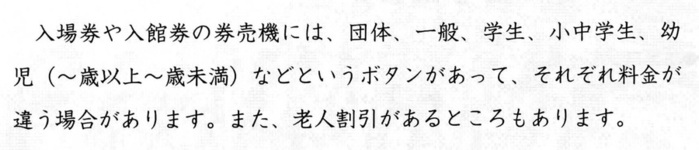 入場券や入館券の券売機には、団体、一般、学生、小中学生、幼
児（～歳以上～歳未満）などというボタンがあって、それぞれ料金が
違う場合があります。また、老人割引があるところもあります。